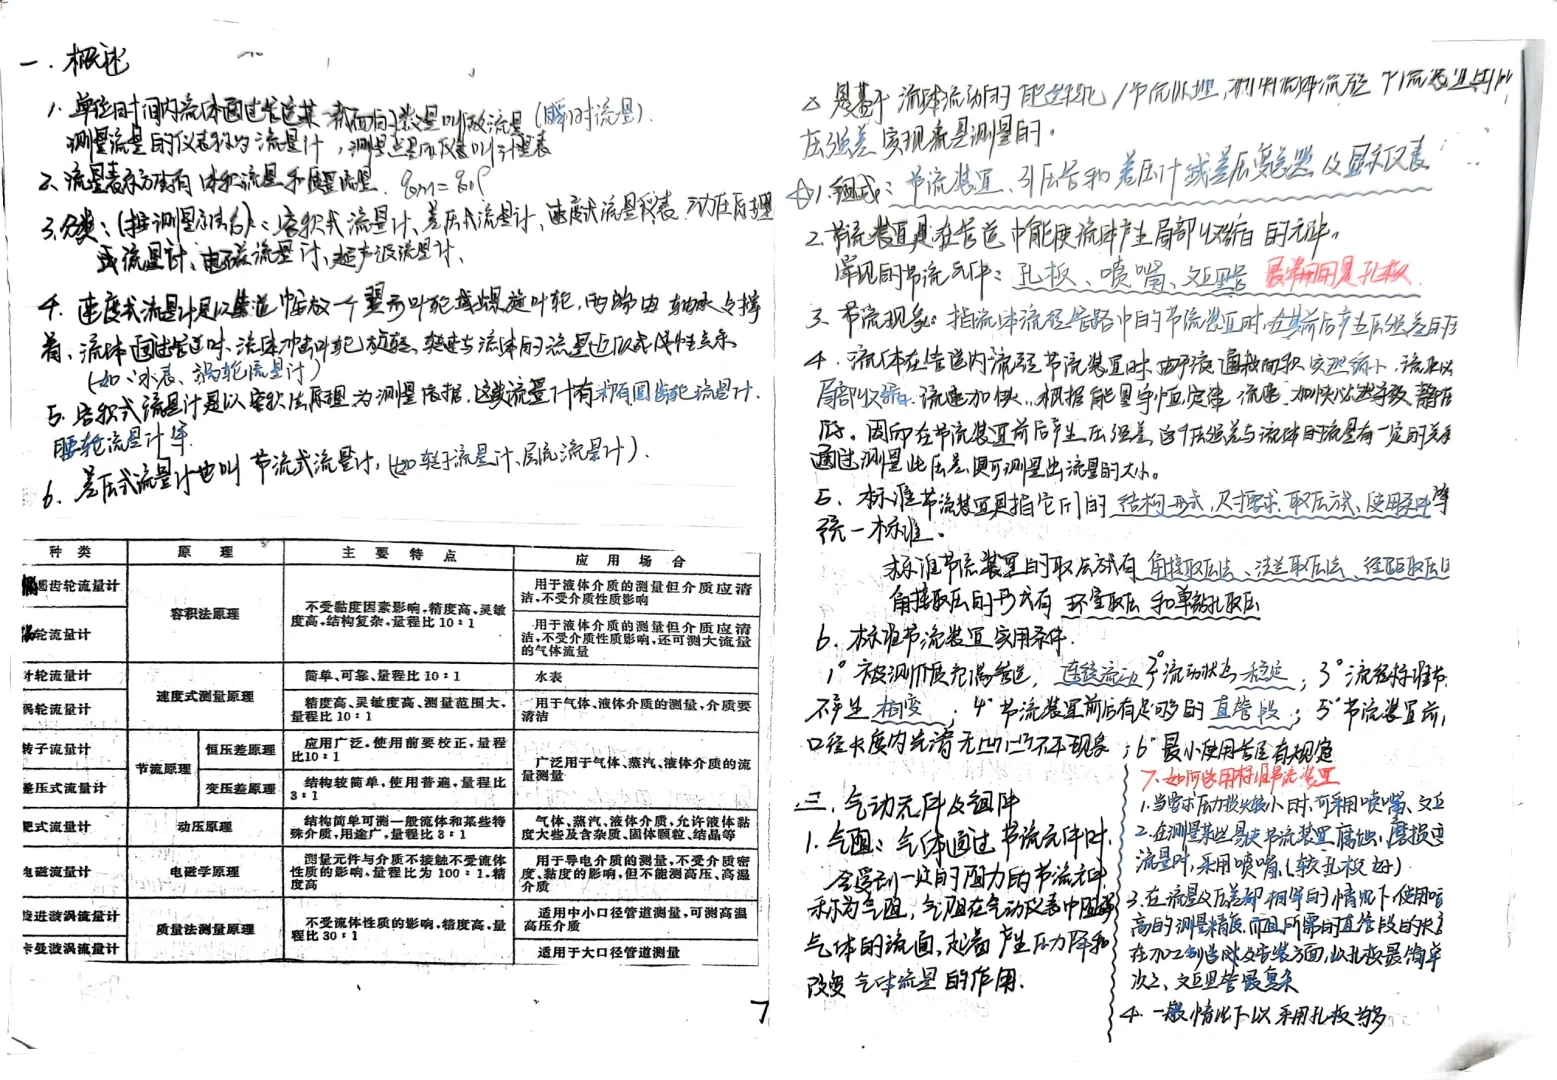 一. 概述
1. 单位时间内流体通过管道某一截面的数量叫做流量(瞬时流量).
测量流量的仪表称为流量计, 测量总量的仪表叫计量表
2. 流量表示方法有 体积流量和质量流量.
3. 分类: (按测量方法分): 容积式流量计、差压式流量计、速度式流量仪表. 动压原理
式流量计、电磁流量计、超声波流量计、
4. 速度式流量计是以管道中放一个翼形叶轮或螺旋叶轮, 两端由轴承支撑
着、流体通过管道时、流体冲击叶轮旋转、转速与流体的流量近似成线性关系
(如: 水表、涡轮流量计)
5. 容积式流量计是以容积法原理为测量依据. 这类流量计有椭圆齿轮流量计.
腰轮流量计等.
6. 差压式流量计也叫 节流式流量计, (如转子流量计、层流流量计).
种类 原理 主要特点 应用场合
齿轮流量计 容积法原理 不受黏度因素影响,精度高,灵敏度高,结构复杂,量程比10:1 用于液体介质的测量但介质应清洁,不受介质性质影响
轮流量计 用于液体介质的测量但介质应清洁,不受介质性质影响,还可测大流量的气体流量
叶轮流量计 速度式测量原理 简单、可靠、量程比10:1 水表
涡轮流量计 精度高、灵敏度高、测量范围大,量程比10:1 用于气体、液体介质的测量,介质要清洁
转子流量计 节流原理 恒压差原理 应用广泛。使用前要校正,量程比10:1 广泛用于气体、蒸汽、液体介质的流量测量
差压式流量计 变压差原理 结构较简单,使用普遍,量程比3:1
靶式流量计 动压原理 结构简单可测一般流体和某些特殊介质,用途广,量程比3:1 气体、蒸汽、液体介质,允许液体黏度大些及含杂质、固体颗粒、结晶等
电磁流量计 电磁学原理 测量元件与介质不接触不受流体性质的影响,量程比为100:1,精度高 用于导电介质的测量,不受介质密度、黏度的影响,但不能测高压、高温介质
旋进波涡流量计 质量法测量原理 不受流体性质的影响,精度高,量程比30:1 适用中小口径管道测量,可测高温高压介质
卡曼波涡流量计 适用于大口径管道测量
7
是基于 流体流动的 节流原理, 利用流体流经节流装置
压强差 实现流量测量的。
1. 组成: 节流装置、引压管和差压计或差压变送器 及显示仪表
2. 节流装置是在管道中能使流体产生局部收缩的元件,
常见的节流元件: 孔板、喷嘴、文丘里管 最常用的是孔板.
3. 节流现象: 指流体流经管路中的节流装置时, 在其前后产生压强差的
4. 流体在管道内流经节流装置时. 由于流通截面积突然缩小, 流束
局部收缩. 流速加快. 根据能量守恒定律 流速加快 静压
低。因而在节流装置前后产生压强差, 这个压强差与流体的流量有一定的关系
通过测量此压差, 既可测量出流量的大小。
5. 标准节流装置是指它们的结构形式, 尺寸要求、取压方式、使用条件等
统一标准.
标准节流装置的取压方式有 角接取压法、法兰取压法、径距取压
角接取压的形式有 环室取压 和单独孔取压
6. 标准节流装置实用条件.
1° 被测介质充满管道, 连续流动 2° 流动状为稳定; 3° 流经标准节
不产生相变; 4° 节流装置前后有足够的直管段; 5° 节流装置前,
口径长度内光滑无凹凸不平现象; 6° 最小使用管径有规定
7. 如何选用标准节流装置
1. 当要求压力损失较小时, 可采用喷嘴、文丘
2. 在测量某些易使节流装置腐蚀, 磨损
流量时, 采用喷嘴. (较孔板好)
3. 在流量及压差都相等的情况下使用喷
高的测量精度, 而且所需的直管段的长
在加工制造以及安装方面, 以孔板最简单
次之、文丘里管最复杂
4. 一般情况下以采用孔板为多
三. 气动元件及组件
1. 气阻: 气体通过节流元件时.
会受到一定的阻力的节流元件
称为气阻, 气阻在气动仪表中阻碍
气体的流通, 起着产生压力降和
改变气体流量的作用.